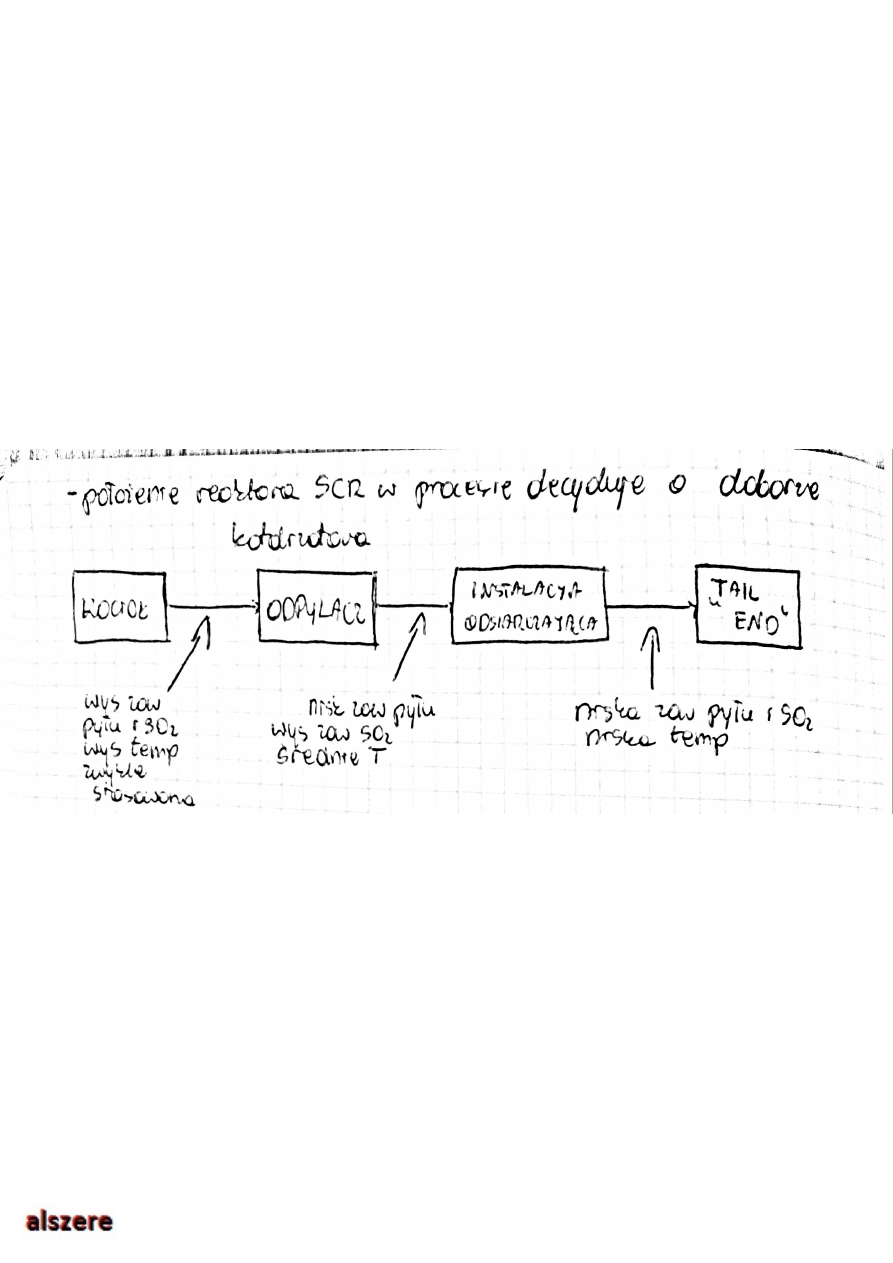 - położenie reaktora SCR w procesie decyduje o doborze
katalizatora
KOCIOŁ
ODPYLACZ
INSTALACJA
ODSIARCZAJĄCA
"TAIL
END"
wys zaw
pyłu i SO2
wys temp
zwykle
stosowana
nisk zaw pyłu
wys zaw SO2
średnie T
niska zaw pyłu i SO2
niska temp
alszere